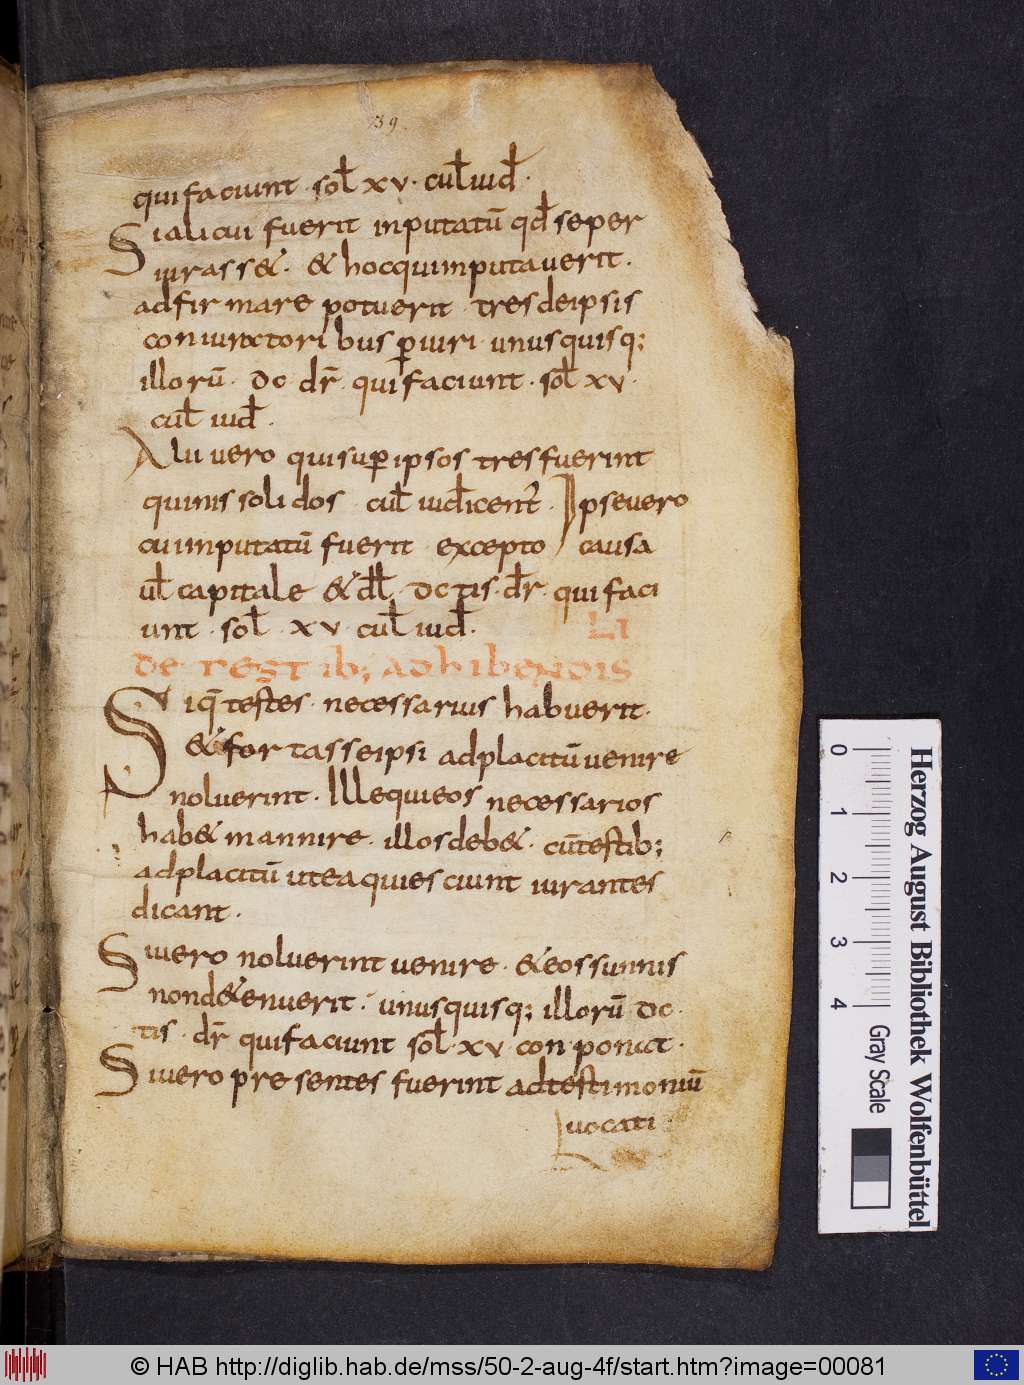 39.
quifaciunt · sol̅ xv · cul̅ iud̅ ·
Sialicui fuerit inputatū qd̅ seper
iurass& · & hocquiinputauerit ·
adfirmare potuerit · tresdeipsis
coniunctoribus p̲iuri · unusquisq;
illorū · dc · dr̅ · quifaciunt · sol̅ xv ·
cul̅ iud̅ ·
Alii uero quisup̲ ipsos tresfuerint
quinis solidos cul̅ iud̅icent̉ · Ipseuero
cuiinputatū fuerit excepto causa
ul̅ capitale & dl̅ · dctis · dr̅ · quifaci
unt · sol̅ · xv · cul̅ iud̅ ·
LI
de testib; adhibendis
Siq̅ testes · necessarius habuerit ·
& fortasseipsi adplacitū uenire
noluerint · Illequieos necessarios
hab& mannire · illosdeb& · cū testib;
adplacitū uteaquiesciunt iurantes
dicant ·
Siuero noluerint uenire · & eossunnis
nond&enuerit · unusquisq; illorū dc ·
tis · dr̅ quifaciunt sol̅ · xv conponat ·
Siuero presentes fuerint adtestimoniū
uocati
0 1 2 3 4
Gray Scale
Herzog August Bibliothek Wolfenbüttel
© HAB http://diglib.hab.de/mss/50-2-aug-4f/start.htm?image=00081